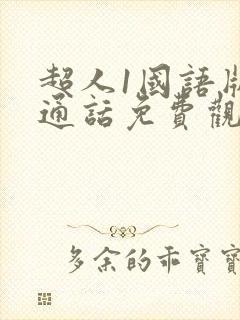 超人1國語版
通話免費觀
多余的乖寶寶